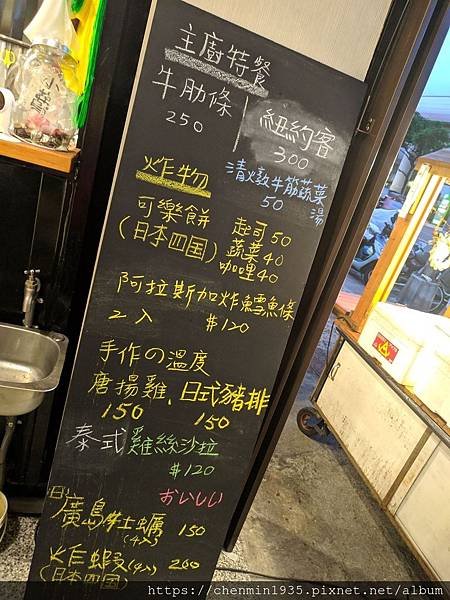 主廚特餐
牛肋條
250
紐約客
300
清燉牛筋蔬菜湯
50
炸物
可樂餅
(日本四国)
起司50
蔬菜40
咖哩40
阿拉斯加炸鱈魚條
2入 $120
手作の溫度
唐揚雞、日式豬排
150 150
泰式雞絲沙拉
$120
おいしい
廣島牡蠣 150
(4入)
炸蝦(4入) 200
(日本四国)
https://chenmin1935.pixnet.net/album